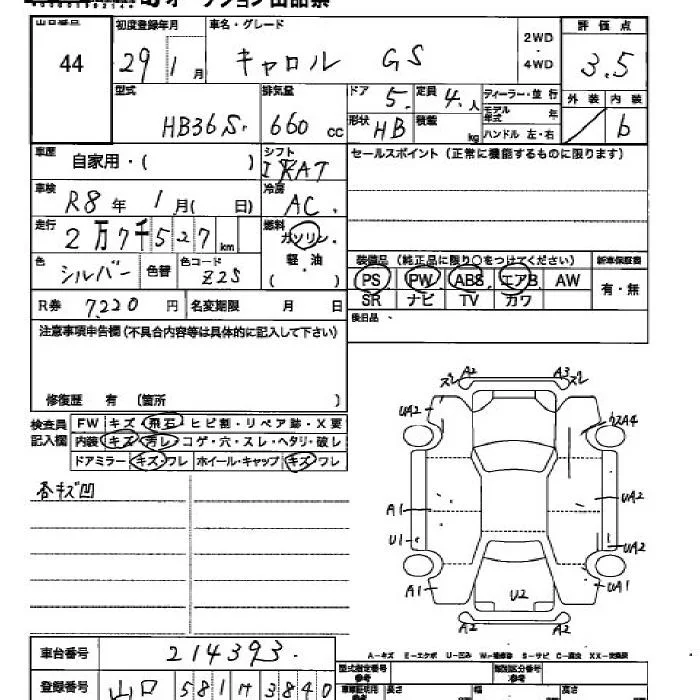 オークション出品票
出品番号 44
初度登録年月 29 1 月
車名・グレード キャロル GS
2WD・4WD
評価点 3.5
型式 HB36S.
排気量 660 cc
ドア 5.
定員 4.人
ディーラー・並行
形状 HB
積載 kg
モデル年式 年
ハンドル 左・右
外装 内装 b
車歴 自家用・( )
シフト
セールスポイント(正常に機能するものに限ります)
車検 R8 年 1 月( 日)
冷房 AC.
走行 2万7千527 km
燃料 ガソリン・軽油( )
色 シルバー 色替 色コード Z2S
装備品(純正品に限り○をつけてください) 新車保証書
PS PW ABS エアB AW 有・無
SR ナビ TV カワ
R券 7220 円 名変期限 月 日
後日品
注意事項申告欄(不具合内容等は具体的に記入して下さい)
修復歴 有 (箇所 )
検査員記入欄
FW キズ・飛石・ヒビ割・リペア跡・X要
内装 キズ・汚レ・コゲ・穴・スレ・ヘタリ・破レ
ドアミラー キズ・ワレ ホイール・キャップ キズ・ワレ
各キズ凹
スレ A2 A3 スレ
UA2 ウスA4
A1 UA2
U1 UA2
A1 U2 UA1
A2 A2
A-キズ E-エクボ U-凹ミ W-補修跡 S-サビ C-腐蝕 XX-交換済
車台番号 214393.
型式指定番号 参考 類別区分番号 参考
登録番号 山口 581 サ 3840
車車証明用 参考 長さ 幅 高さ